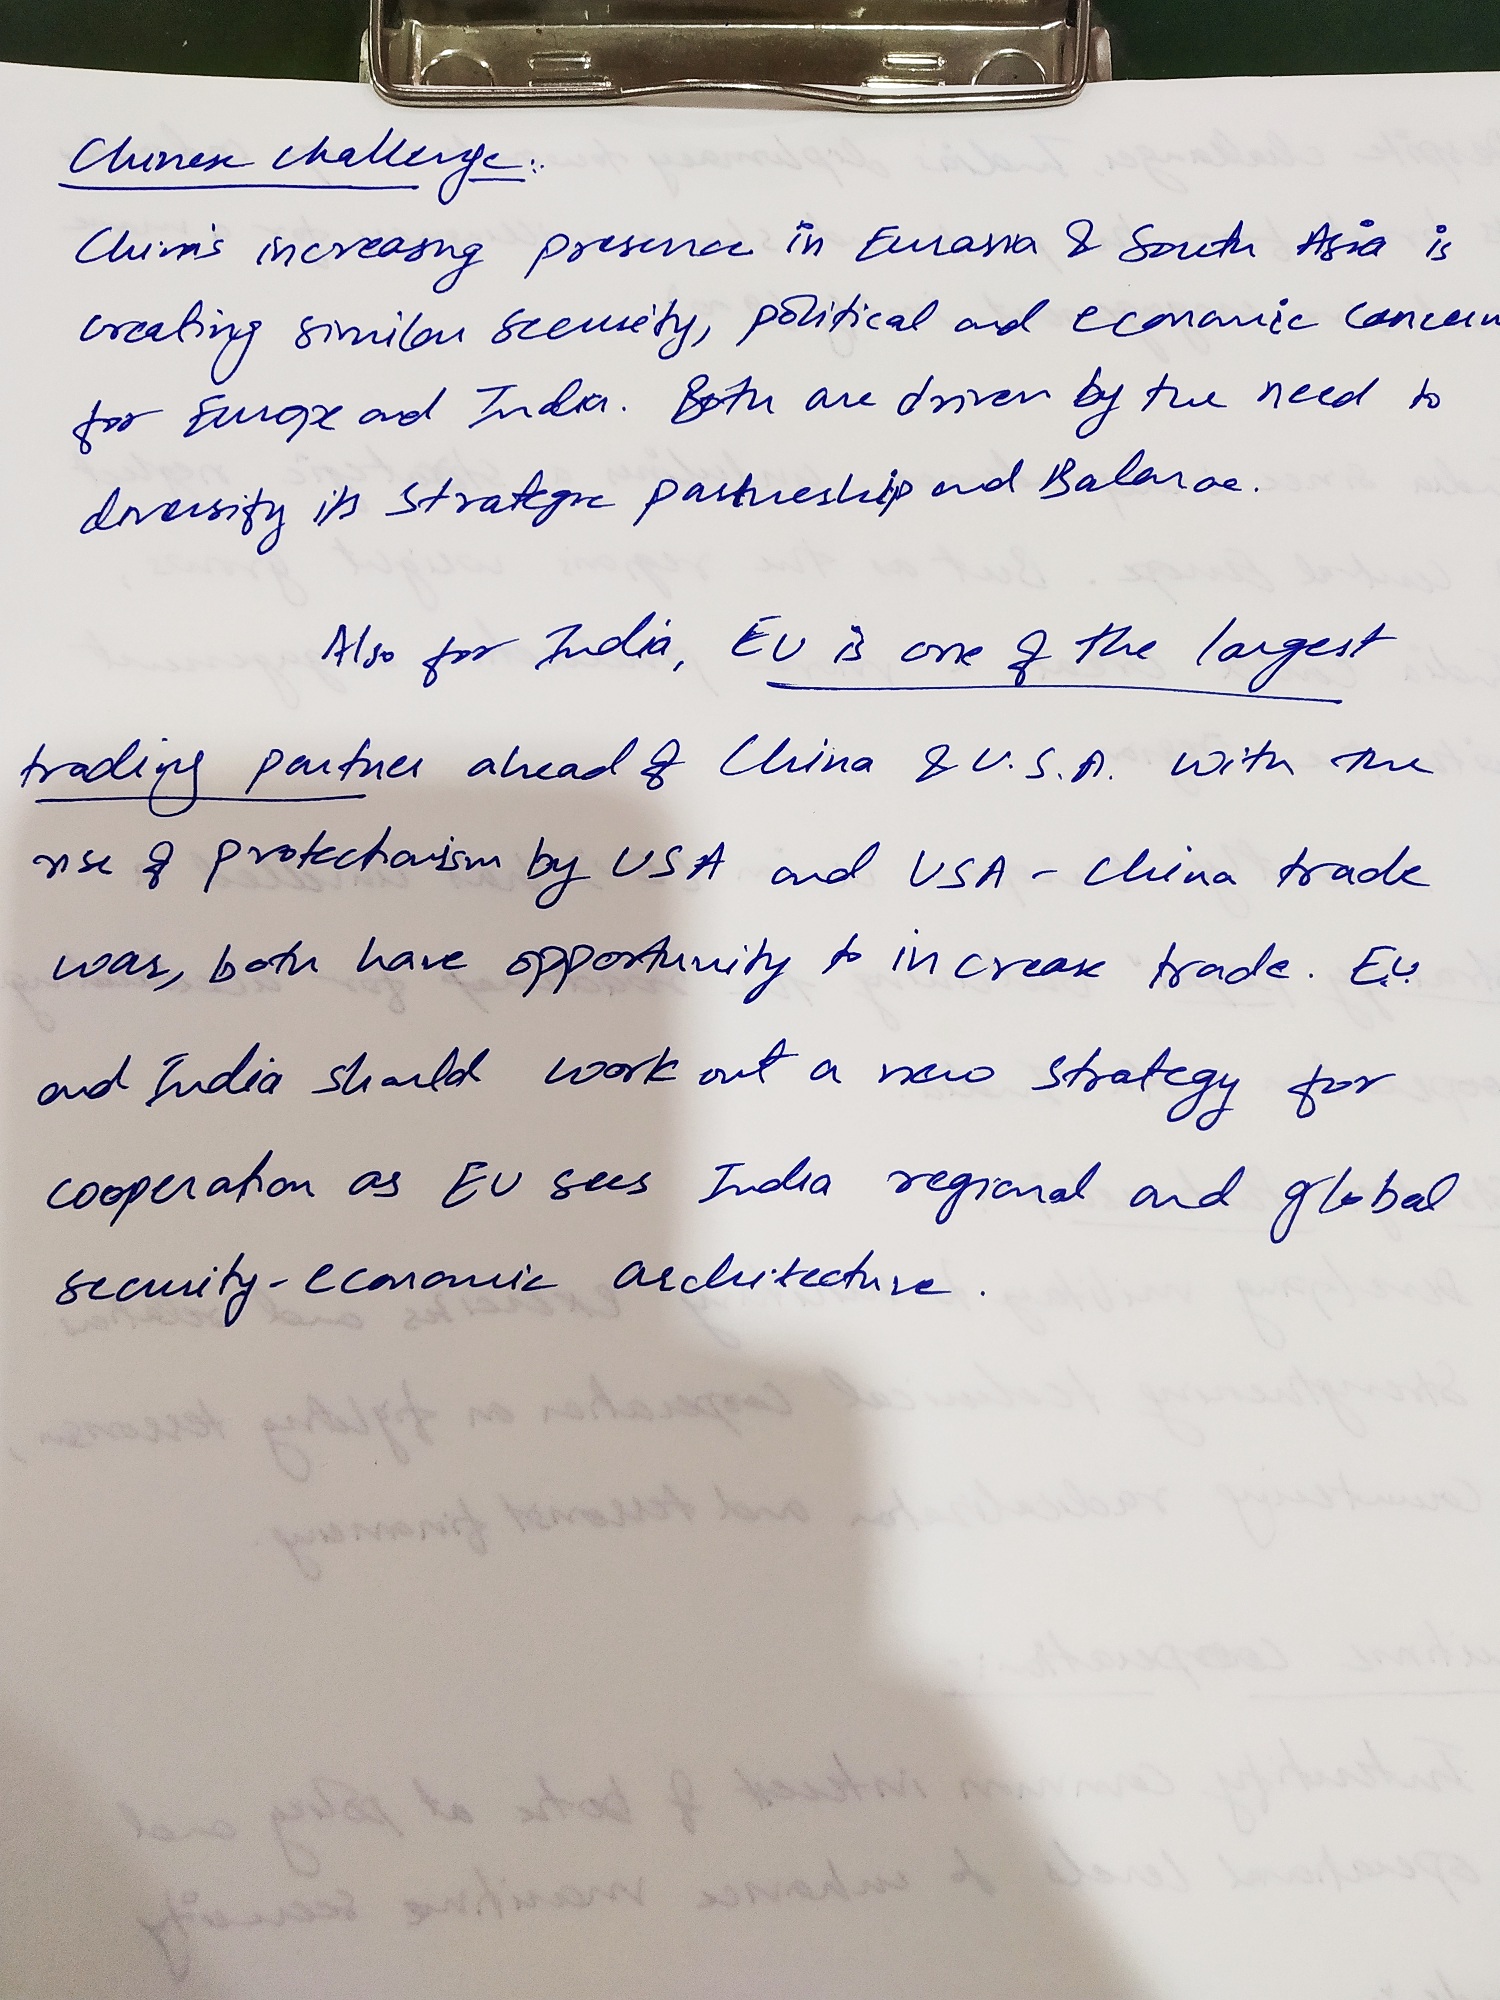 Chinese challenge:
China's increasing presence in Eurasia & South Asia is
creating similar security, political and economic concern
for Europe and India. Both are driven by the need to
diversify its strategic partnership and Balance.
Also for India, EU is one of the largest
trading partner ahead of China & U.S.A. with the
rise of protectionism by USA and USA - China trade
was, both have opportunity to increase trade. E.U.
and India should work out a new strategy for
cooperation as EU sees India regional and global
security-economic architecture.